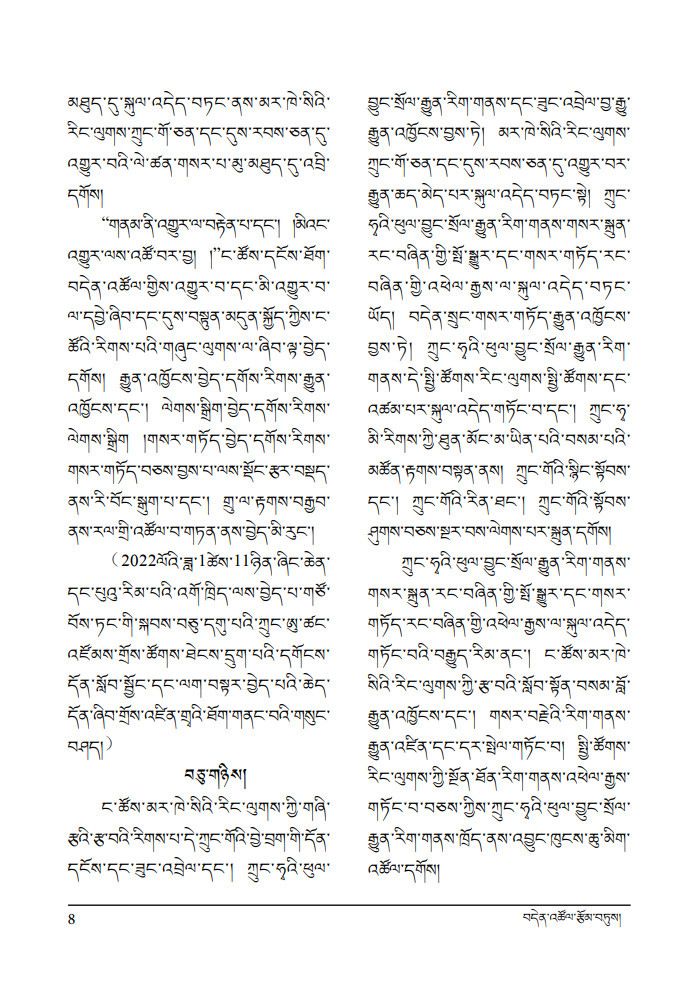 མཐུད་དུ་སྐུལ་འདེད་བཏང་ནས་མར་ཁེ་སིའི་
རིང་ལུགས་ཀྲུང་གོ་ཅན་དང་དུས་རབས་ཅན་དུ་
འགྱུར་བའི་ལེ་ཚན་གསར་པ་མུ་མཐུད་དུ་འབྲི་
དགོས།
“གནམ་ནི་འགྱུར་ལ་བརྟེན་པ་དང༌། །མིའང་
འགྱུར་ལས་འཚོ་བར་བྱ། །”ང་ཚོས་དངོས་ཐོག་
བདེན་འཚོལ་གྱིས་འགྱུར་བ་དང་མི་འགྱུར་བ་
ལ་དབྱེ་ཞིབ་དང་དུས་བསྟུན་མདུན་སྐྱོད་ཀྱིས་ང་
ཚོའི་རིགས་པའི་གཞུང་ལུགས་ལ་ཞིབ་ལྟ་བྱེད་
དགོས། རྒྱུན་འཁྱོངས་བྱེད་དགོས་རིགས་རྒྱུན་
འཁྱོངས་དང༌། ལེགས་སྒྲིག་བྱེད་དགོས་རིགས་
ལེགས་སྒྲིག །གསར་གཏོད་བྱེད་དགོས་རིགས་
གསར་གཏོད་བཅས་བྱས་པ་ལས་སྡོང་རྩར་བསྡད་
ནས་རི་བོང་སྒུག་པ་དང༌། གྲུ་ལ་རྟགས་བརྒྱབ་
ནས་རལ་གྲི་འཚོལ་བ་གཏན་ནས་བྱེད་མི་རུང༌།
（2022ལོའི་ཟླ་1ཚེས་11ཉིན་ཞིང་ཆེན་
དང་པུའུ་རིམ་པའི་འགོ་ཁྲིད་ལས་བྱེད་པ་གཙོ་
བོས་ཏང་གི་སྐབས་བཅུ་དགུ་པའི་ཀྲུང་ཨུ་ཚང་
འཛོམས་གྲོས་ཚོགས་ཐེངས་དྲུག་པའི་དགོངས་
དོན་སློབ་སྦྱོང་དང་ལག་བསྟར་བྱེད་པའི་ཆེད་
དོན་ཞིབ་གྲོས་འཛིན་གྲྭའི་ཐོག་གནང་བའི་གསུང་
བཤད།）
བཅུ་གཉིས།
ང་ཚོས་མར་ཁེ་སིའི་རིང་ལུགས་ཀྱི་གཞི་
རྩའི་རྩ་བའི་རིགས་པ་དེ་ཀྲུང་གོའི་བྱེ་བྲག་གི་དོན་
དངོས་དང་ཟུང་འབྲེལ་དང༌། ཀྲུང་ཧྭའི་ཕུལ་
བྱུང་སྲོལ་རྒྱུན་རིག་གནས་དང་ཟུང་འབྲེལ་བྱ་རྒྱུ་
རྒྱུན་འཁྱོངས་བྱས་ཏེ། མར་ཁེ་སིའི་རིང་ལུགས་
ཀྲུང་གོ་ཅན་དང་དུས་རབས་ཅན་དུ་འགྱུར་བར་
རྒྱུན་ཆད་མེད་པར་སྐུལ་འདེད་བཏང་སྟེ། ཀྲུང་
ཧྭའི་ཕུལ་བྱུང་སྲོལ་རྒྱུན་རིག་གནས་གསར་སྐྲུན་
རང་བཞིན་གྱི་སྤོ་སྒྱུར་དང་གསར་གཏོད་རང་
བཞིན་གྱི་འཕེལ་རྒྱས་ལ་སྐུལ་འདེད་བཏང་
ཡོད། བདེན་སྲུང་གསར་གཏོད་རྒྱུན་འཁྱོངས་
བྱས་ཏེ། ཀྲུང་ཧྭའི་ཕུལ་བྱུང་སྲོལ་རྒྱུན་རིག་
གནས་དེ་སྤྱི་ཚོགས་རིང་ལུགས་སྤྱི་ཚོགས་དང་
འཚམ་པར་སྐུལ་འདེད་གཏོང་བ་དང༌། ཀྲུང་ཧྭ་
མི་རིགས་ཀྱི་ཐུན་མོང་མ་ཡིན་པའི་བསམ་པའི་
མཚོན་རྟགས་བསྟན་ནས། ཀྲུང་གོའི་སྙིང་སྟོབས་
དང༌། ཀྲུང་གོའི་རིན་ཐང༌། ཀྲུང་གོའི་སྟོབས་
ཤུགས་བཅས་སྔར་བས་ལེགས་པར་སྐྲུན་དགོས།
ཀྲུང་ཧྭའི་ཕུལ་བྱུང་སྲོལ་རྒྱུན་རིག་གནས་
གསར་སྐྲུན་རང་བཞིན་གྱི་སྤོ་སྒྱུར་དང་གསར་
གཏོད་རང་བཞིན་གྱི་འཕེལ་རྒྱས་ལ་སྐུལ་འདེད་
གཏོང་བའི་བརྒྱུད་རིམ་ནང༌། ང་ཚོས་མར་ཁེ་
སིའི་རིང་ལུགས་ཀྱི་རྩ་བའི་སློབ་སྟོན་བསམ་བློ་
རྒྱུན་འཁྱོངས་དང༌། གསར་བརྗེའི་རིག་གནས་
རྒྱུན་འཛིན་དང་དར་སྤེལ་གཏོང་བ། སྤྱི་ཚོགས་
རིང་ལུགས་ཀྱི་སྔོན་ཐོན་རིག་གནས་འཕེལ་རྒྱས་
གཏོང་བ་བཅས་ཀྱིས་ཀྲུང་ཧྭའི་ཕུལ་བྱུང་སྲོལ་
རྒྱུན་རིག་གནས་ཁྲོད་ནས་འབྱུང་ཁུངས་ཆུ་མིག་
འཚོལ་དགོས།
8
བདེན་འཚོལ་རྩོམ་བཏུས།